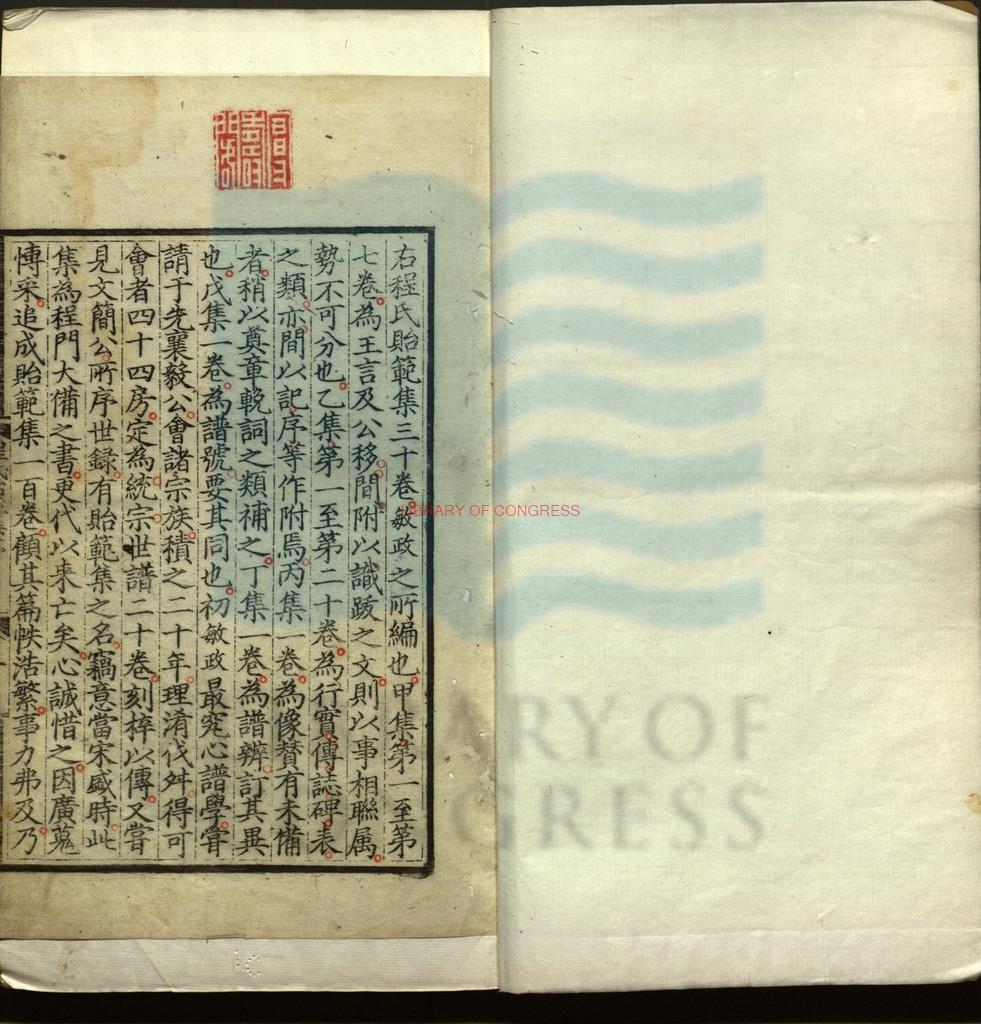 右程氏貽範集三十卷敏政之所編也甲集第一至第
七卷為王言及公移間附以識跋之文則以事相聯属
勢不可分也乙集第一至第二十卷為行實傳誌碑表
之類亦間以記序等作附焉丙集一卷為像賛有未備
者稍以奠章輓詞之類補之丁集一卷為譜辨訂其異
也戊集一卷為譜號要其同也初敏政最究心譜學嘗
請于先襄毅公會諸宗族積之二十年理淆伐舛得可
會者四十四房定為統宗世譜二十卷刻梓以傳又嘗
見文簡公所序世録有貽範集之名竊意當宋盛時此
集為程門大備之書更代以来亡矣心誠惜之因廣蒐
博采追成貽範集一百卷顧其篇帙浩繁事力弗及乃
LIBRARY OF CONGRESS